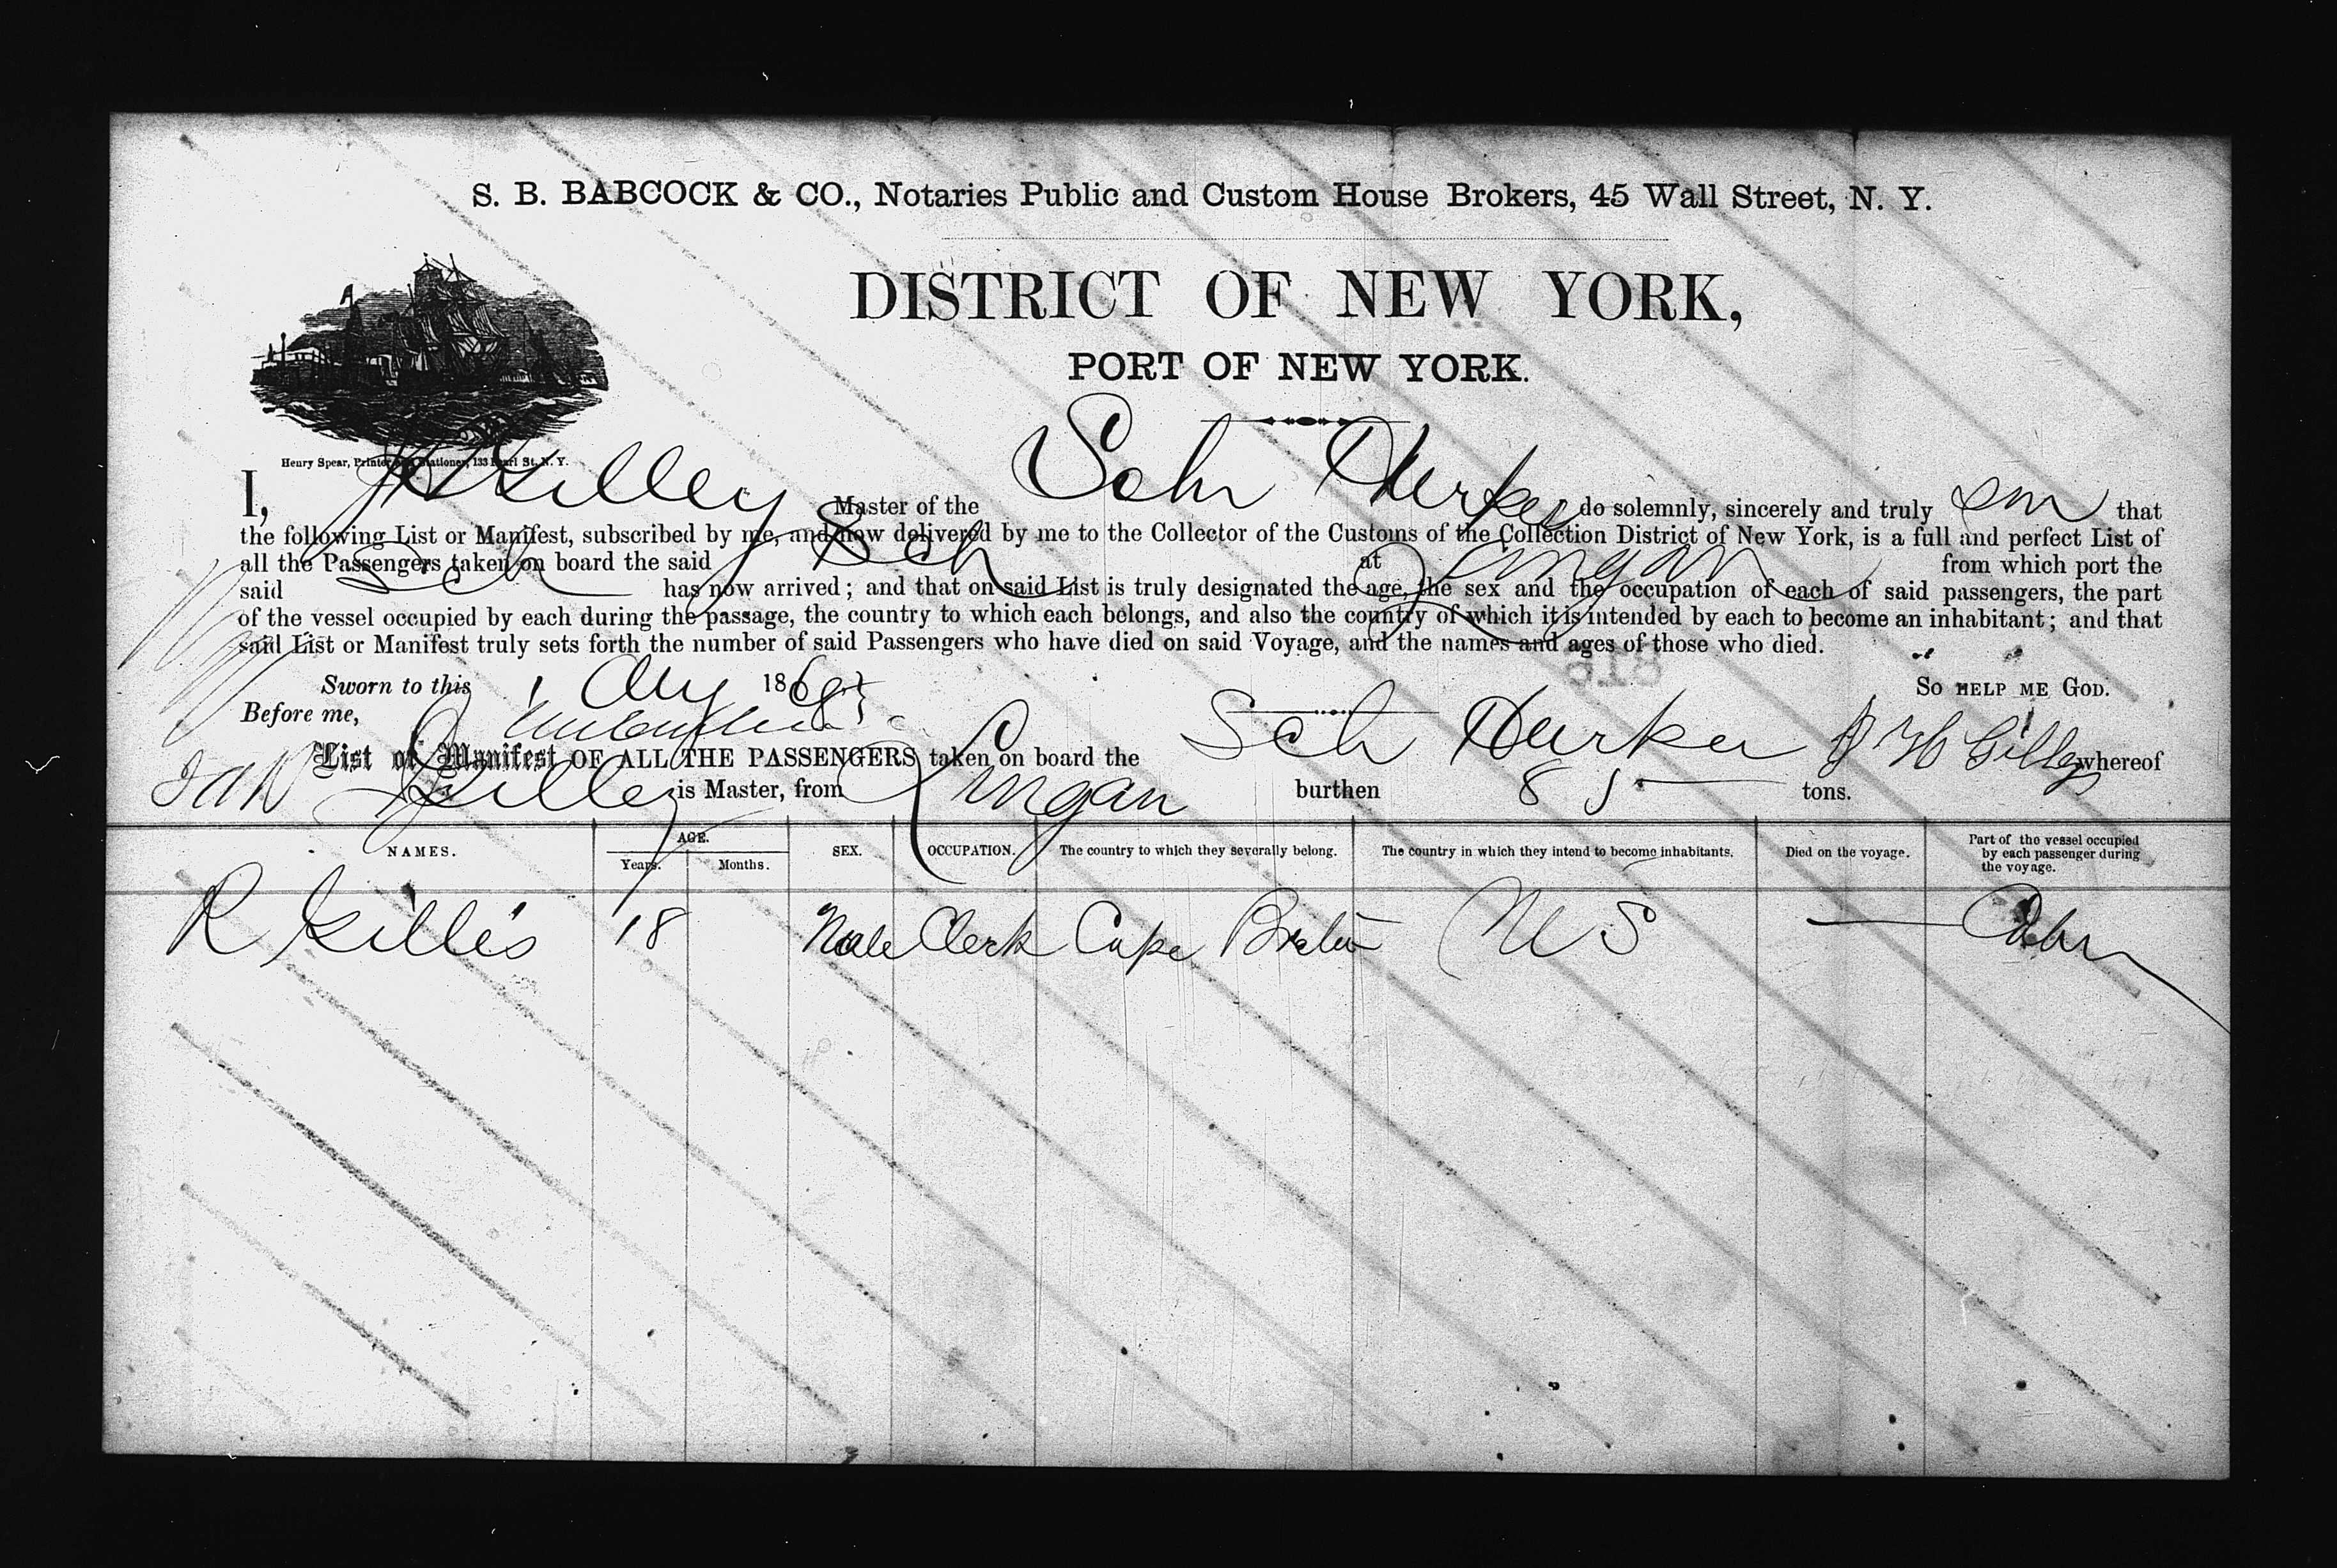 S. B. BABCOCK & CO., Notaries Public and Custom House Brokers, 45 Wall Street, N. Y.
DISTRICT OF NEW YORK,
PORT OF NEW YORK.
Henry Spear, Printer and Stationer, 133 Pearl St. N. Y.
I, Gilley Master of the Schr do solemnly, sincerely and truly that
the following List or Manifest, subscribed by me, and now delivered by me to the Collector of the Customs of the Collection District of New York, is a full and perfect List of
all the Passengers taken on board the said Sch at Lingan from which port the
said Sch has now arrived; and that on said List is truly designated the age, the sex and the occupation of each of said passengers, the part
of the vessel occupied by each during the passage, the country to which each belongs, and also the country of which it is intended by each to become an inhabitant; and that
said List or Manifest truly sets forth the number of said Passengers who have died on said Voyage, and the names and ages of those who died.
816
Sworn to this 1 Aug 1868 So HELP ME GOD.
Before me,
List or Manifest OF ALL THE PASSENGERS taken on board the Sch whereof
Gilley is Master, from Lingan burthen 85 tons.
NAMES. AGE. Years. Months. SEX. OCCUPATION. The country to which they severally belong. The country in which they intend to become inhabitants. Died on the voyage. Part of the vessel occupied by each passenger during the voyage.
R Gillis 18 Male Clerk Cape Breton U S — Cabin